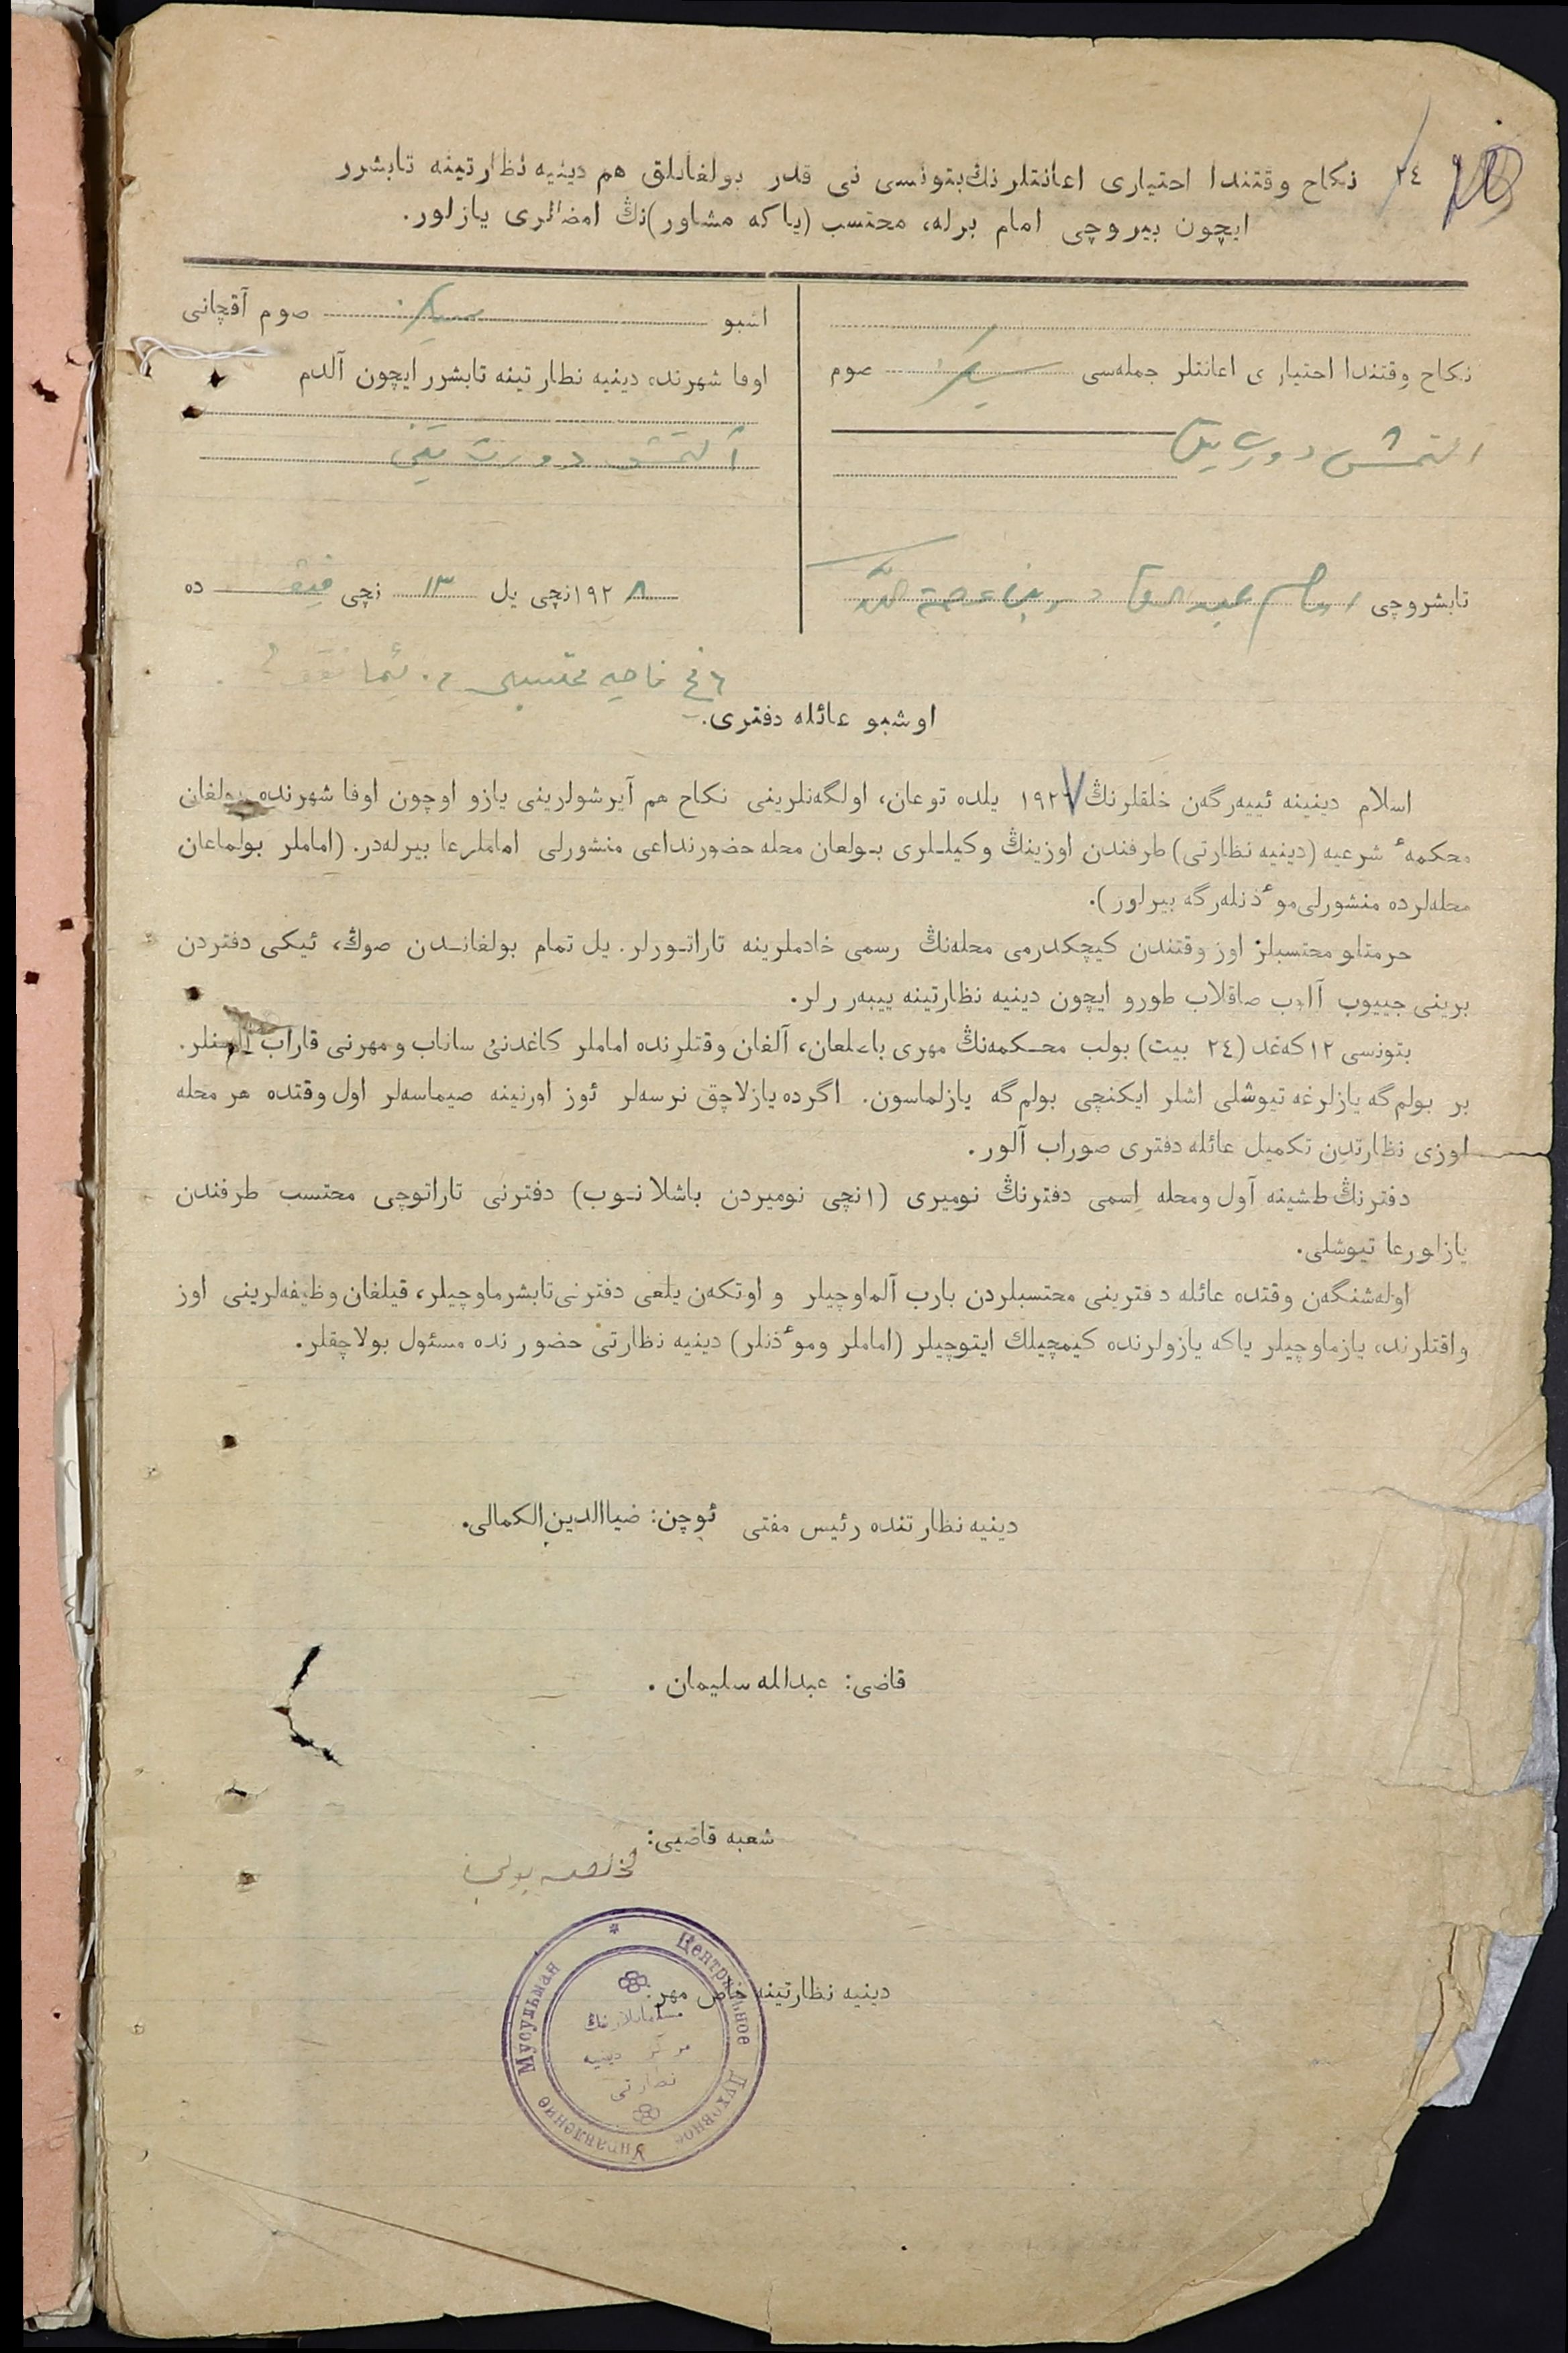 ٢٤ نكاح وقتندا احتياری اعانتلرنڭ بتونسی نی قدر بولغانلق هم دينيه نظارتينه تابشرر
ايچون بيروچی امام برله، محتسب (ياكه مشاور)نڭ امضالری يازلور.
نكاح وقتندا احتياری اعانتلر جمله‌سی سيكز صوم
التمش دورت تين
تابشروچی امام
اشبو سيكز صوم آقچانی
اوفا شهرنده دينيه نطارتينه تابشرر ايچون آلدم
آلتمش دورت تيننی
١٩٢٨نچی يل ١٣ نچی ده
٦نچی ناحيه محتسبی
اوشبو عائله دفتری.
اسلام دينينه ئييه‌رگه‌ن خلقلرنڭ ١٩٢٧ يلده توعان، اولگه‌نلرينی نكاح هم آيرشولرينی يازو اوچون اوفا شهرنده بولغان
محكمهٔ شرعيه (دينيه نظارتی) طرفندن اوزينڭ وكيللری بولعان محله حضورنداعی منشورلی اماملرعا بيرله‌در. (اماملر بولماعان
محله‌لرده منشورلی موٴذنله‌رگه بيرلور).
حرمتلو محتسبلر اوز وقتندن كيچكدرمی محله‌نڭ رسمی خادملرينه تاراتورلر. يل تمام بولغاندن صوڭ، ئيكی دفتردن
برينی جييوب آلوب صاقلاب طورو ايچون دينيه نظارتينه ييبه‌ررلر.
بتونسی ١٢ كه‌غد (٢٤ بيت) بولب محكمه‌نڭ مهری باعلعان، آلغان وقتلرنده اماملر كاغدنی ساناب و مهرنی قاراب آلسنلر.
بر بولم‌گه يازلرغه تيوشلی اشلر ايكنچی بولم‌گه يازلماسون. اگرده يازلاچق نرسه‌لر ئوز اورنينه صيماسه‌لر اول وقتده هر محله
اوزی نظارتدن تكميل عائله دفتری صوراب آلور.
دفترنڭ طشينه آول ومحله اِسمی دفترنڭ نوميری (١نچی نوميردن باشلانوب) دفترنی تاراتوچی محتسب طرفندن
يازلورعا تيوشلی.
اوله‌شنگه‌ن وقتده عائله دفترينی محتسبلردن بارب آلماوچيلر و اوتكه‌ن يلعی دفترنی تابشرماوچيلر، قيلغان وظيفه‌لرينی اوز
واقتلرنده يازماوچيلر ياكه يازولرنده كيمچيلك ايتوچيلر (اماملر وموٴذنلر) دينيه نظارتی حضورنده مسئول بولاچقلر.
دينيه نظارتنده رئيس مفتی ئوچن: ضياالدين الكمالی.
قاضی: عبدالله سليمان.
شعبه قاضيی:
دينيه نظارتينه خاص مهر:
Центральное Духовное Управление Мусульман
مسلمانلارنڭ
مركز دينيه
نظارتی